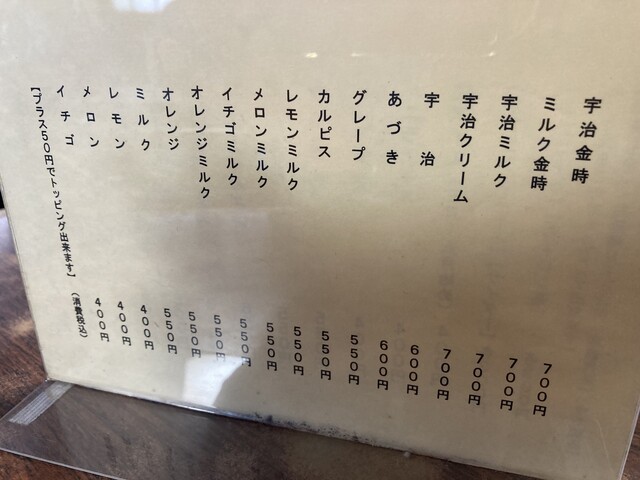 宇治金時 700円
ミルク金時 700円
宇治ミルク 700円
宇治クリーム 700円
宇治 600円
あづき 600円
グレープ 550円
カルピス 550円
レモンミルク 550円
メロンミルク 550円
イチゴミルク 550円
オレンジミルク 550円
オレンジ 550円
ミルク 550円
レモン 400円
メロン 400円
イチゴ 400円
【プラス50円でトッピング出来ます】 (消費税込)